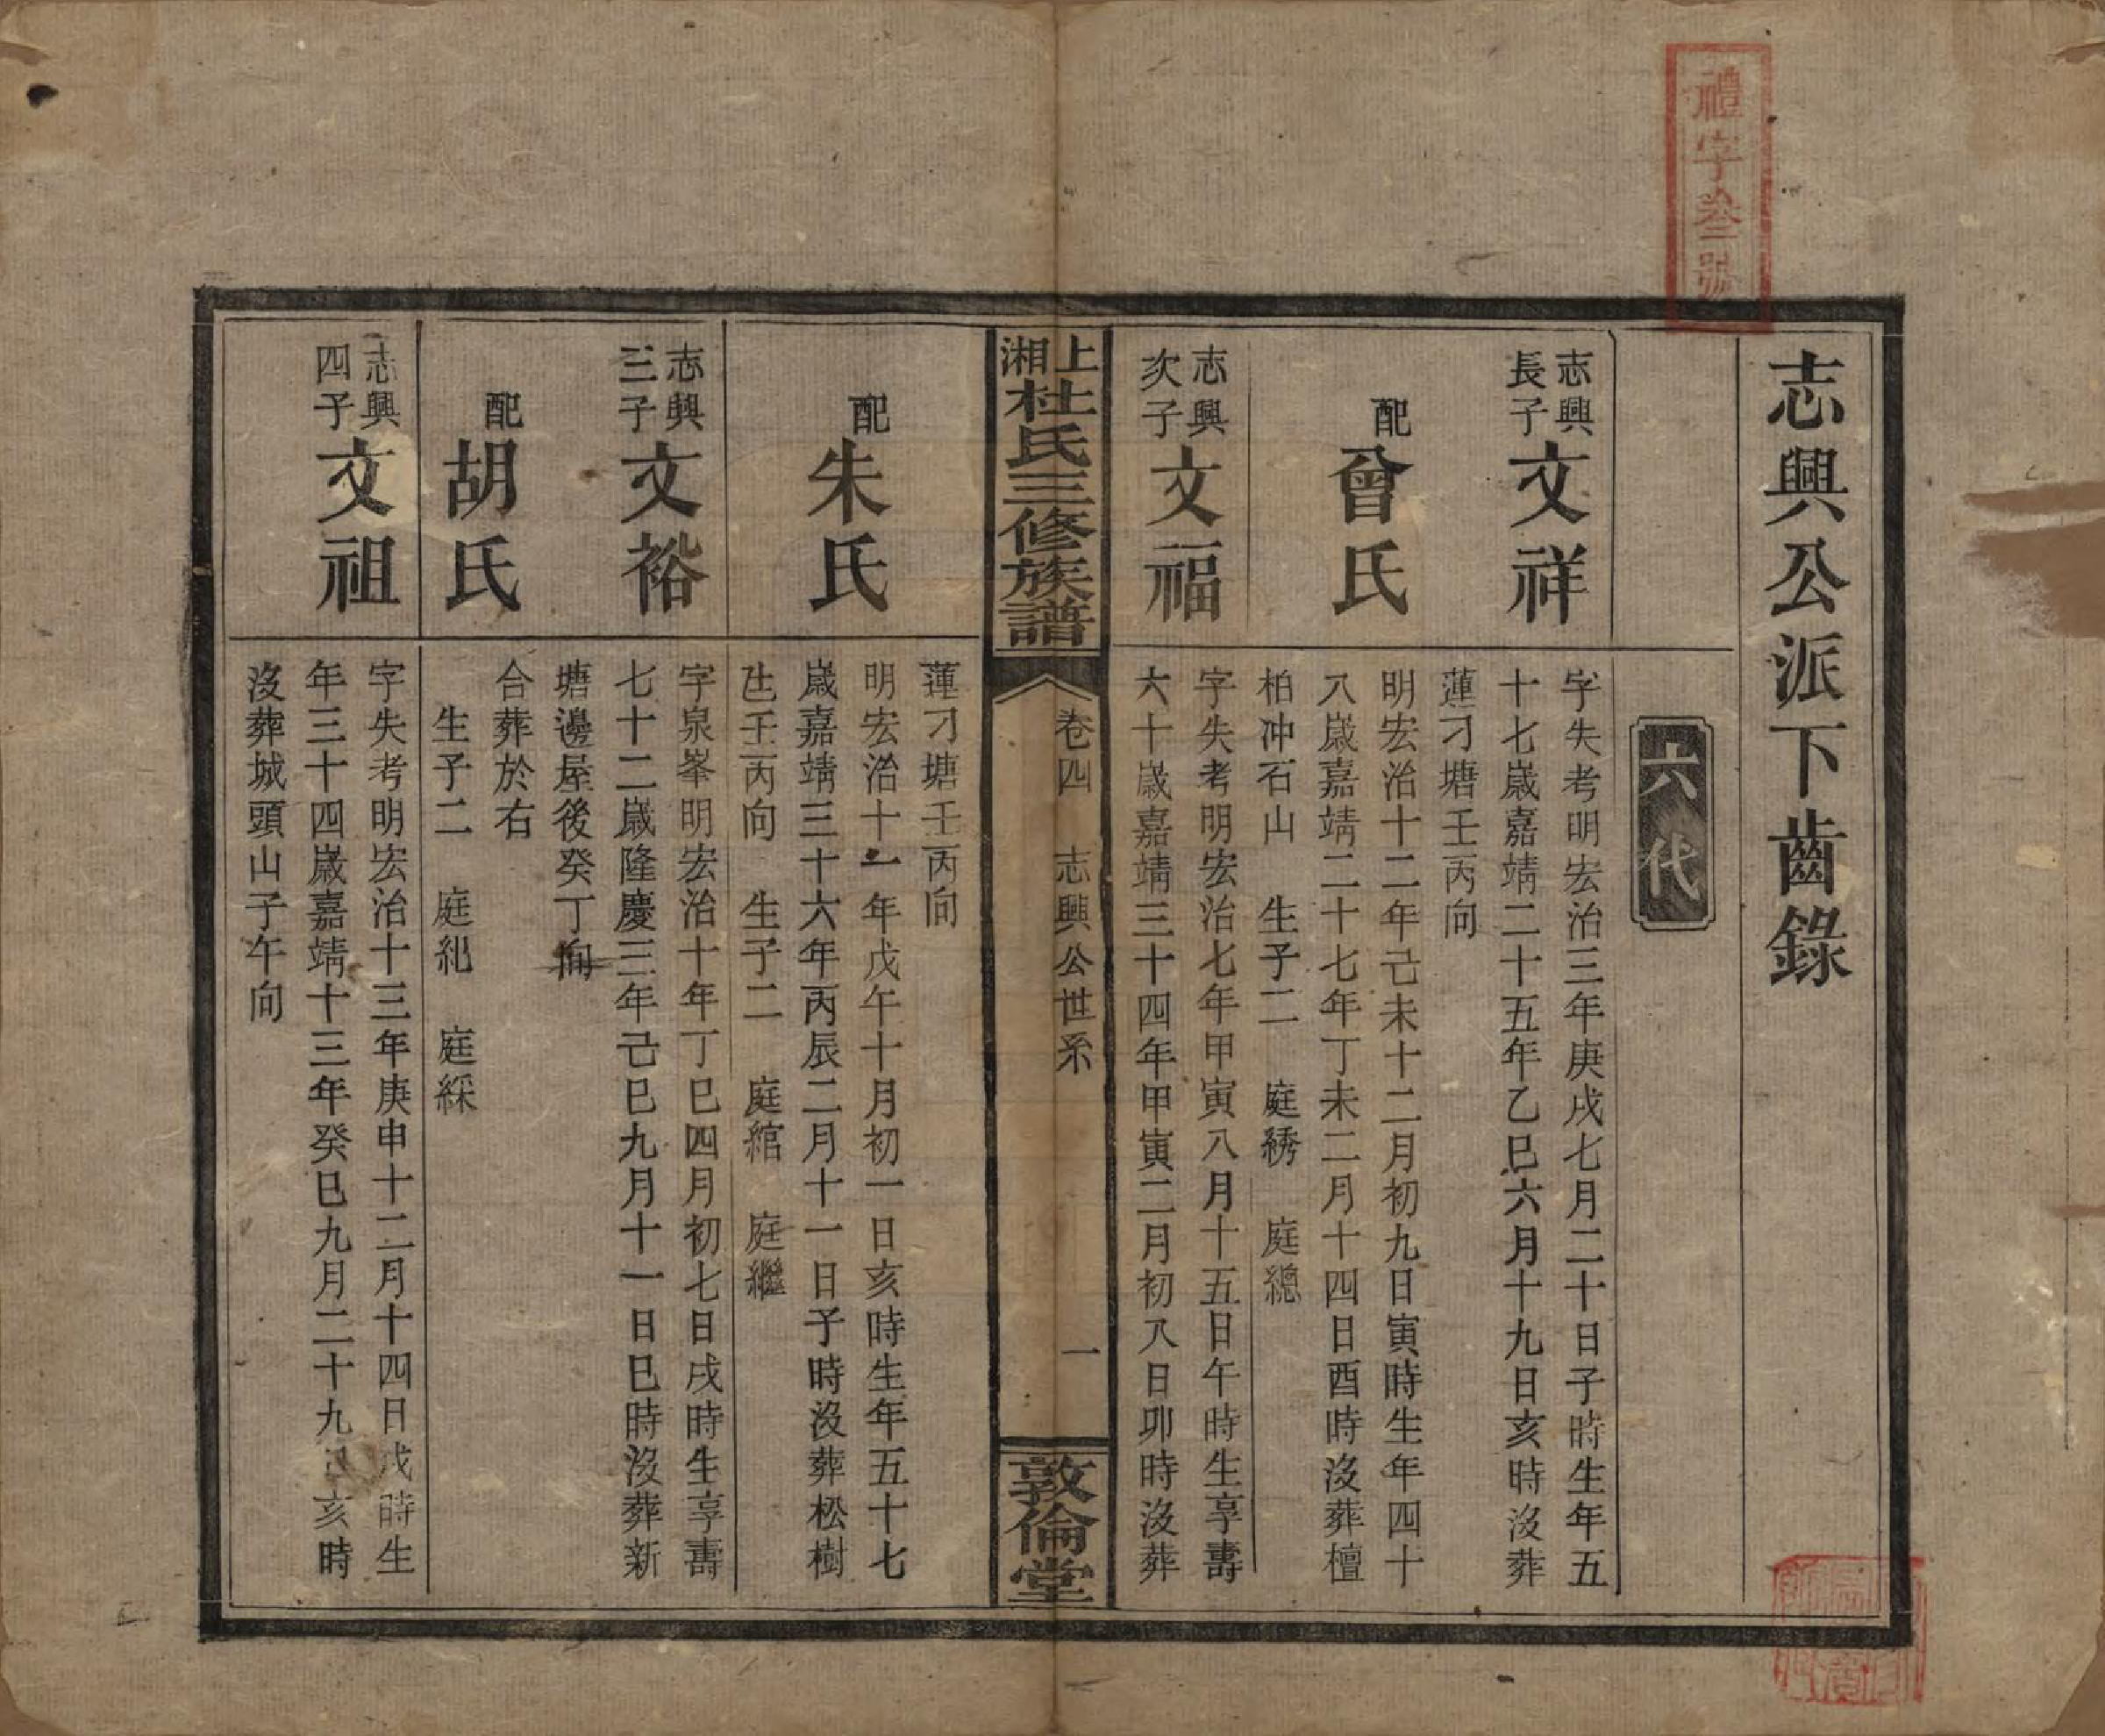 禮字叁號
志興公派下齒錄
六代
志興
長子
文祥
字失考明宏治三年庚戌七月二十日子時生年五
十七歲嘉靖二十五年乙巳六月十九日亥時沒葬
蓮刁塘壬丙向
配
曾氏
明宏治十二年己未十二月初九日寅時生年四十
八歲嘉靖二十七年丁未二月十四日酉時沒葬檀
柏冲石山 生子二 庭綉 庭總
志興
次子
文福
字失考明宏治七年甲寅八月十五日午時生享壽
六十歲嘉靖三十四年甲寅二月初八日卯時沒葬
上湘杜氏三修族譜
卷四 志興公世系
一
敦倫堂
蓮刁塘壬丙向
配
朱氏
明宏治十一年戊午十月初一日亥時生年五十七
歲嘉靖三十六年丙辰二月十一日子時沒葬松樹
壬丙向 生子二 庭綰 庭繼
志興
三子
文裕
字泉峯明宏治十年丁巳四月初七日戌時生享壽
七十二歲隆慶三年己巳九月十一日巳時沒葬新
塘邊屋後癸丁向
配
胡氏
合葬於右
生子二 庭紀 庭綵
志興
四子
文祖
字失考明宏治十三年庚申十二月十四日戌時生
年三十四歲嘉靖十三年癸巳九月二十九日亥時
沒葬城頭山子午向